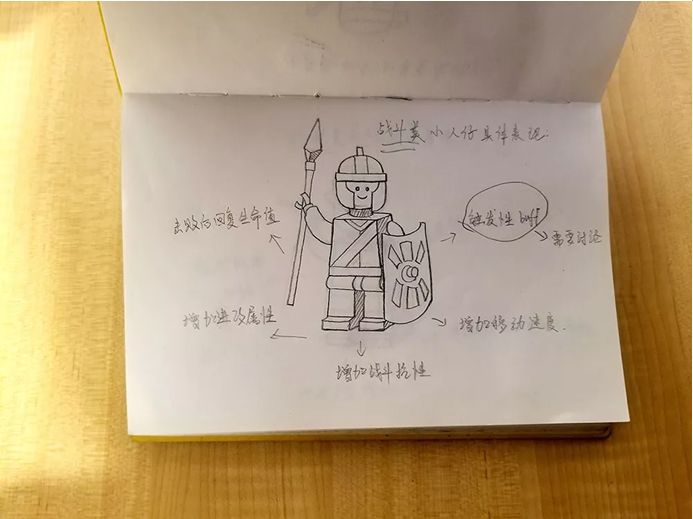 战斗类小人仔具体表现.
击败后回复生命值
触发性buff
需要讨论
增加进攻属性
增加移动速度.
增加战斗抗性